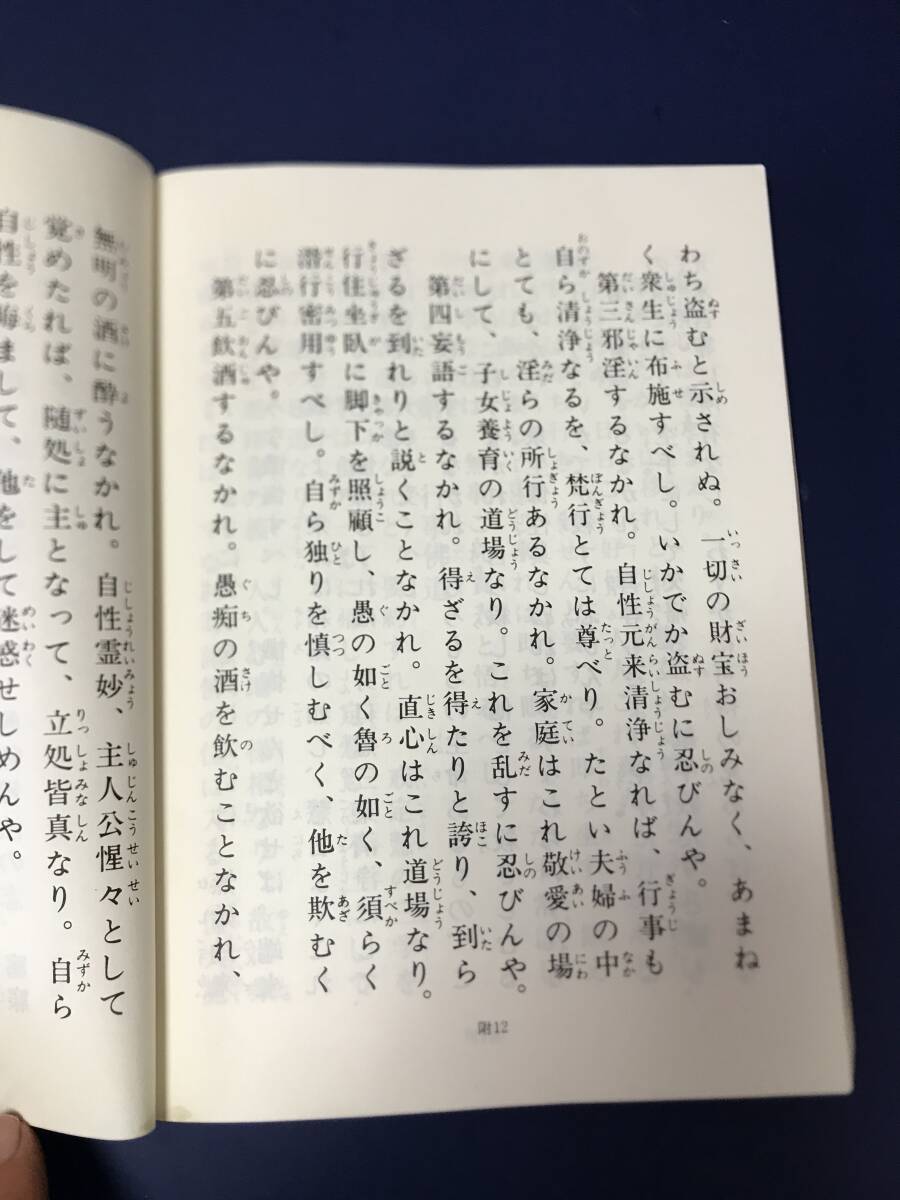 わち盗むと示されぬ。一切の財宝おしみなく、あまね
く衆生に布施すべし。いかでか盗むに忍びんや。
第三邪淫するなかれ。自性元来清浄なれば、行事も
自ら清浄なるを、梵行とては尊べり。たとい夫婦の中
とても、淫らの所行あるなかれ。家庭はこれ敬愛の場
にして、子女養育の道場なり。これを乱すに忍びんや。
第四妄語するなかれ。得ざるを得たりと誇り、到ら
ざるを到れりと説くことなかれ。直心はこれ道場なり。
行住坐臥に脚下を照顧し、愚の如く魯の如く、須らく
潜行密用すべし。自ら独りを慎しむべく、他を欺むく
に忍びんや。
第五飲酒するなかれ。愚痴の酒を飲むことなかれ、
附12
無明の酒に酔うなかれ。自性霊妙、主人公惺々として
覚めたれば、随処に主となって、立処皆真なり。自ら
自性を晦まして、他をして迷惑せしめんや。